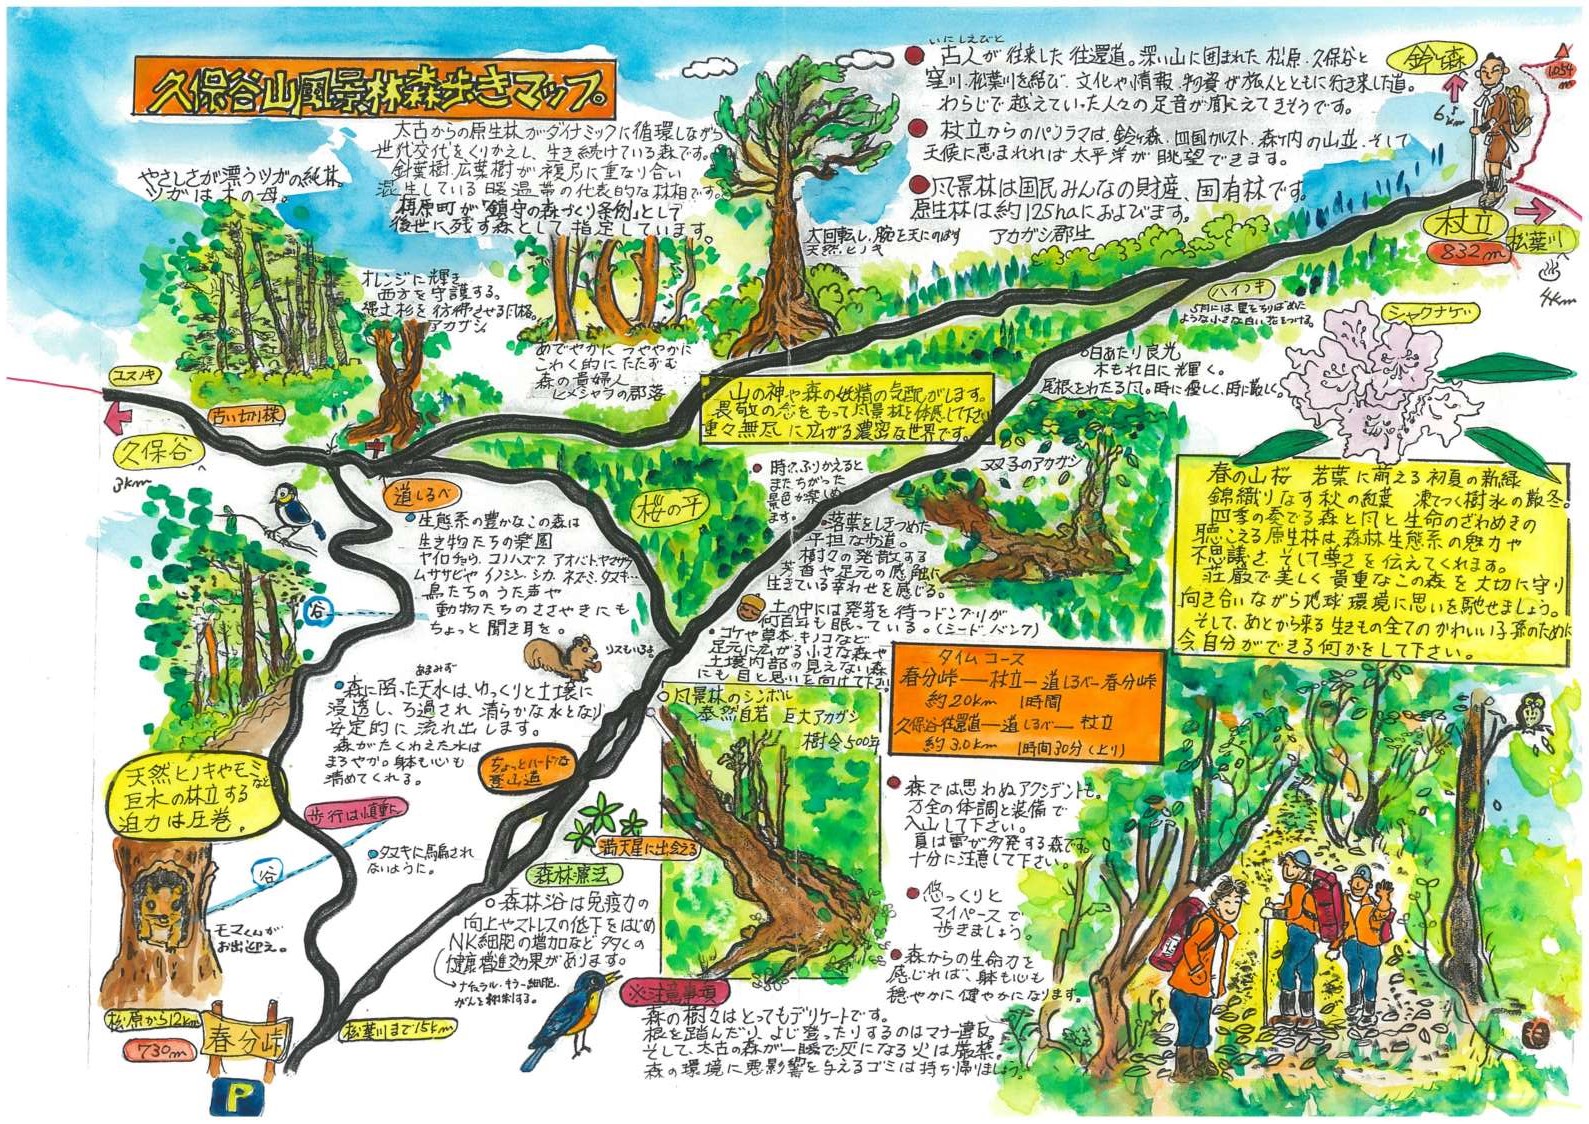 久保谷山風景林森歩きマップ。
太古からの原生林がダイナミックに循環しながら
世代交代をくりかえし、生き続けている森です。
針葉樹、広葉樹が複層に重なり合い
混生している暖温帯の代表的な林相です。
梼原町が「鎮守の森づくり条例」として
後世に残す森として指定しています。
やさしさが漂うツガの純林。
ツガは木の母。
いにしえびと
古人が往来した往還道。深い山に囲まれた松原、久保谷と
窪川、松葉川を結び、文化や情報、物資が旅人とともに行き来した道。
わらじで越えていった人々の足音が聞えてきそうです。
杖立からのパノラマは、鈴ヶ森、四国カルスト、森ヶ内の山並、そして
天候に恵まれれば太平洋が眺望できます。
風景林は国民みんなの財産、国有林です。
原生林は約125haにおよびます。
鈴ヶ森
1054m
6km
杖立
832m
松葉川
4km
大回転し、腕を天にのばす
天然ヒノキ
アカガシ群生
オレンジに輝き
西方を守護する。
縄文杉を彷彿させる風格。
アカガシ
あでやかに つややかに
しなく的にたたずむ
森の貴婦人
ヒメシャラの部落
ハイノキ
5月には星をちりばめた
ような小さな白い花をつける。
シャクナゲ
日あたり良光
木もれ日に光輝く。
尾根をわたる風。時に優しく、時に厳しく。
ユスノキ
古い切り株
久保谷
3km
道しるべ
桜の平
山の神や森の妖精の気配がします。
畏敬の念をもって風景林を体感して下さい
重々無尽に広がる濃密な世界です。
双子のアカガシ
時々ふりかえると
またちがった
景色が楽しめ
ます。
落葉をしきつめた
平担な歩道。
樹々の発散する
芳香や足元の感触に
生きている幸わせを感じる。
土の中には発芽を待つドングリが
何百年も眠っている。(シードバンク)
コケや草本、キノコなど
足元に広がる小さな森や
土壌内部の見えない森
にも目と思いを向けて下さい
春の山桜 若葉に萌える初夏の新緑
錦織りなす秋の紅葉 凍てつく樹氷の厳冬。
四季の奏でる森と風と生命のざわめきの
聴こえる原生林は、森林生態系の魅力や
不思議さ、そして尊さを伝えてくれます。
荘厳で美しく貴重なこの森を大切に守り
向き合いながら地球環境に思いを馳せましょう。
そして、あとから来る生きもの全てのかわいい子孫のために
今自分ができる何かをして下さい。
生態系の豊かなこの森は
生き物たちの楽園
ヤイロチョウ、コノハズク、アオバト、ヤマガラ
ムササビや イノシシ、シカ、ネズミ、タヌキ…
鳥たちのうた声や
動物たちのささやきにも
ちょっと聞き耳を。
リスもいるよ。
谷
あまみず
森に降った天水は、ゆっくりと土壌に
浸透し、ろ過され 清らかな水となり
安定的に流れ出します。
森がたくわえた水は
まろやか。躰も心も
清めてくれる。
天然ヒノキやモミなど
巨木の林立する
迫力は圧巻。
歩行は慎重に
谷
タヌキに馬鹿され
ないように。
モマくんが
お出迎え。
ちょっとハードな
登山道
満天星に出会える
森林療法
森林浴は免疫力の
向上やストレスの低下をはじめ
NK細胞の増加など多くの
健康増進効果があります。
ナチュラル・キラー細胞。
がんを抑制する。
風景林のシンボル
泰然自若 巨大アカガシ
樹令500年
タイムコース
春分峠―杖立―道しるべ―春分峠
約2.0km 1時間
久保谷往還道―道しるべ―杖立
約3.0km 1時間30分(上り)
森では思わぬアクシデントも。
万全の体調と装備で
入山して下さい。
夏は雷が多発する森です。
十分に注意して下さい。
悠っくりと
マイペースで
歩きましょう。
森からの生命力を
感じれば、躰も心も
穏やかに健やかになります。
松原から12km
春分峠
730m
P
松葉川まで15km
※注意事項
森の樹々はとってもデリケートです。
根を踏んだり、よじ登ったりするのはマナー違反。
そして、太古の森が一瞬で灰になる火は厳禁。
森の環境に悪影響を与えるゴミは持ち帰りましょう。